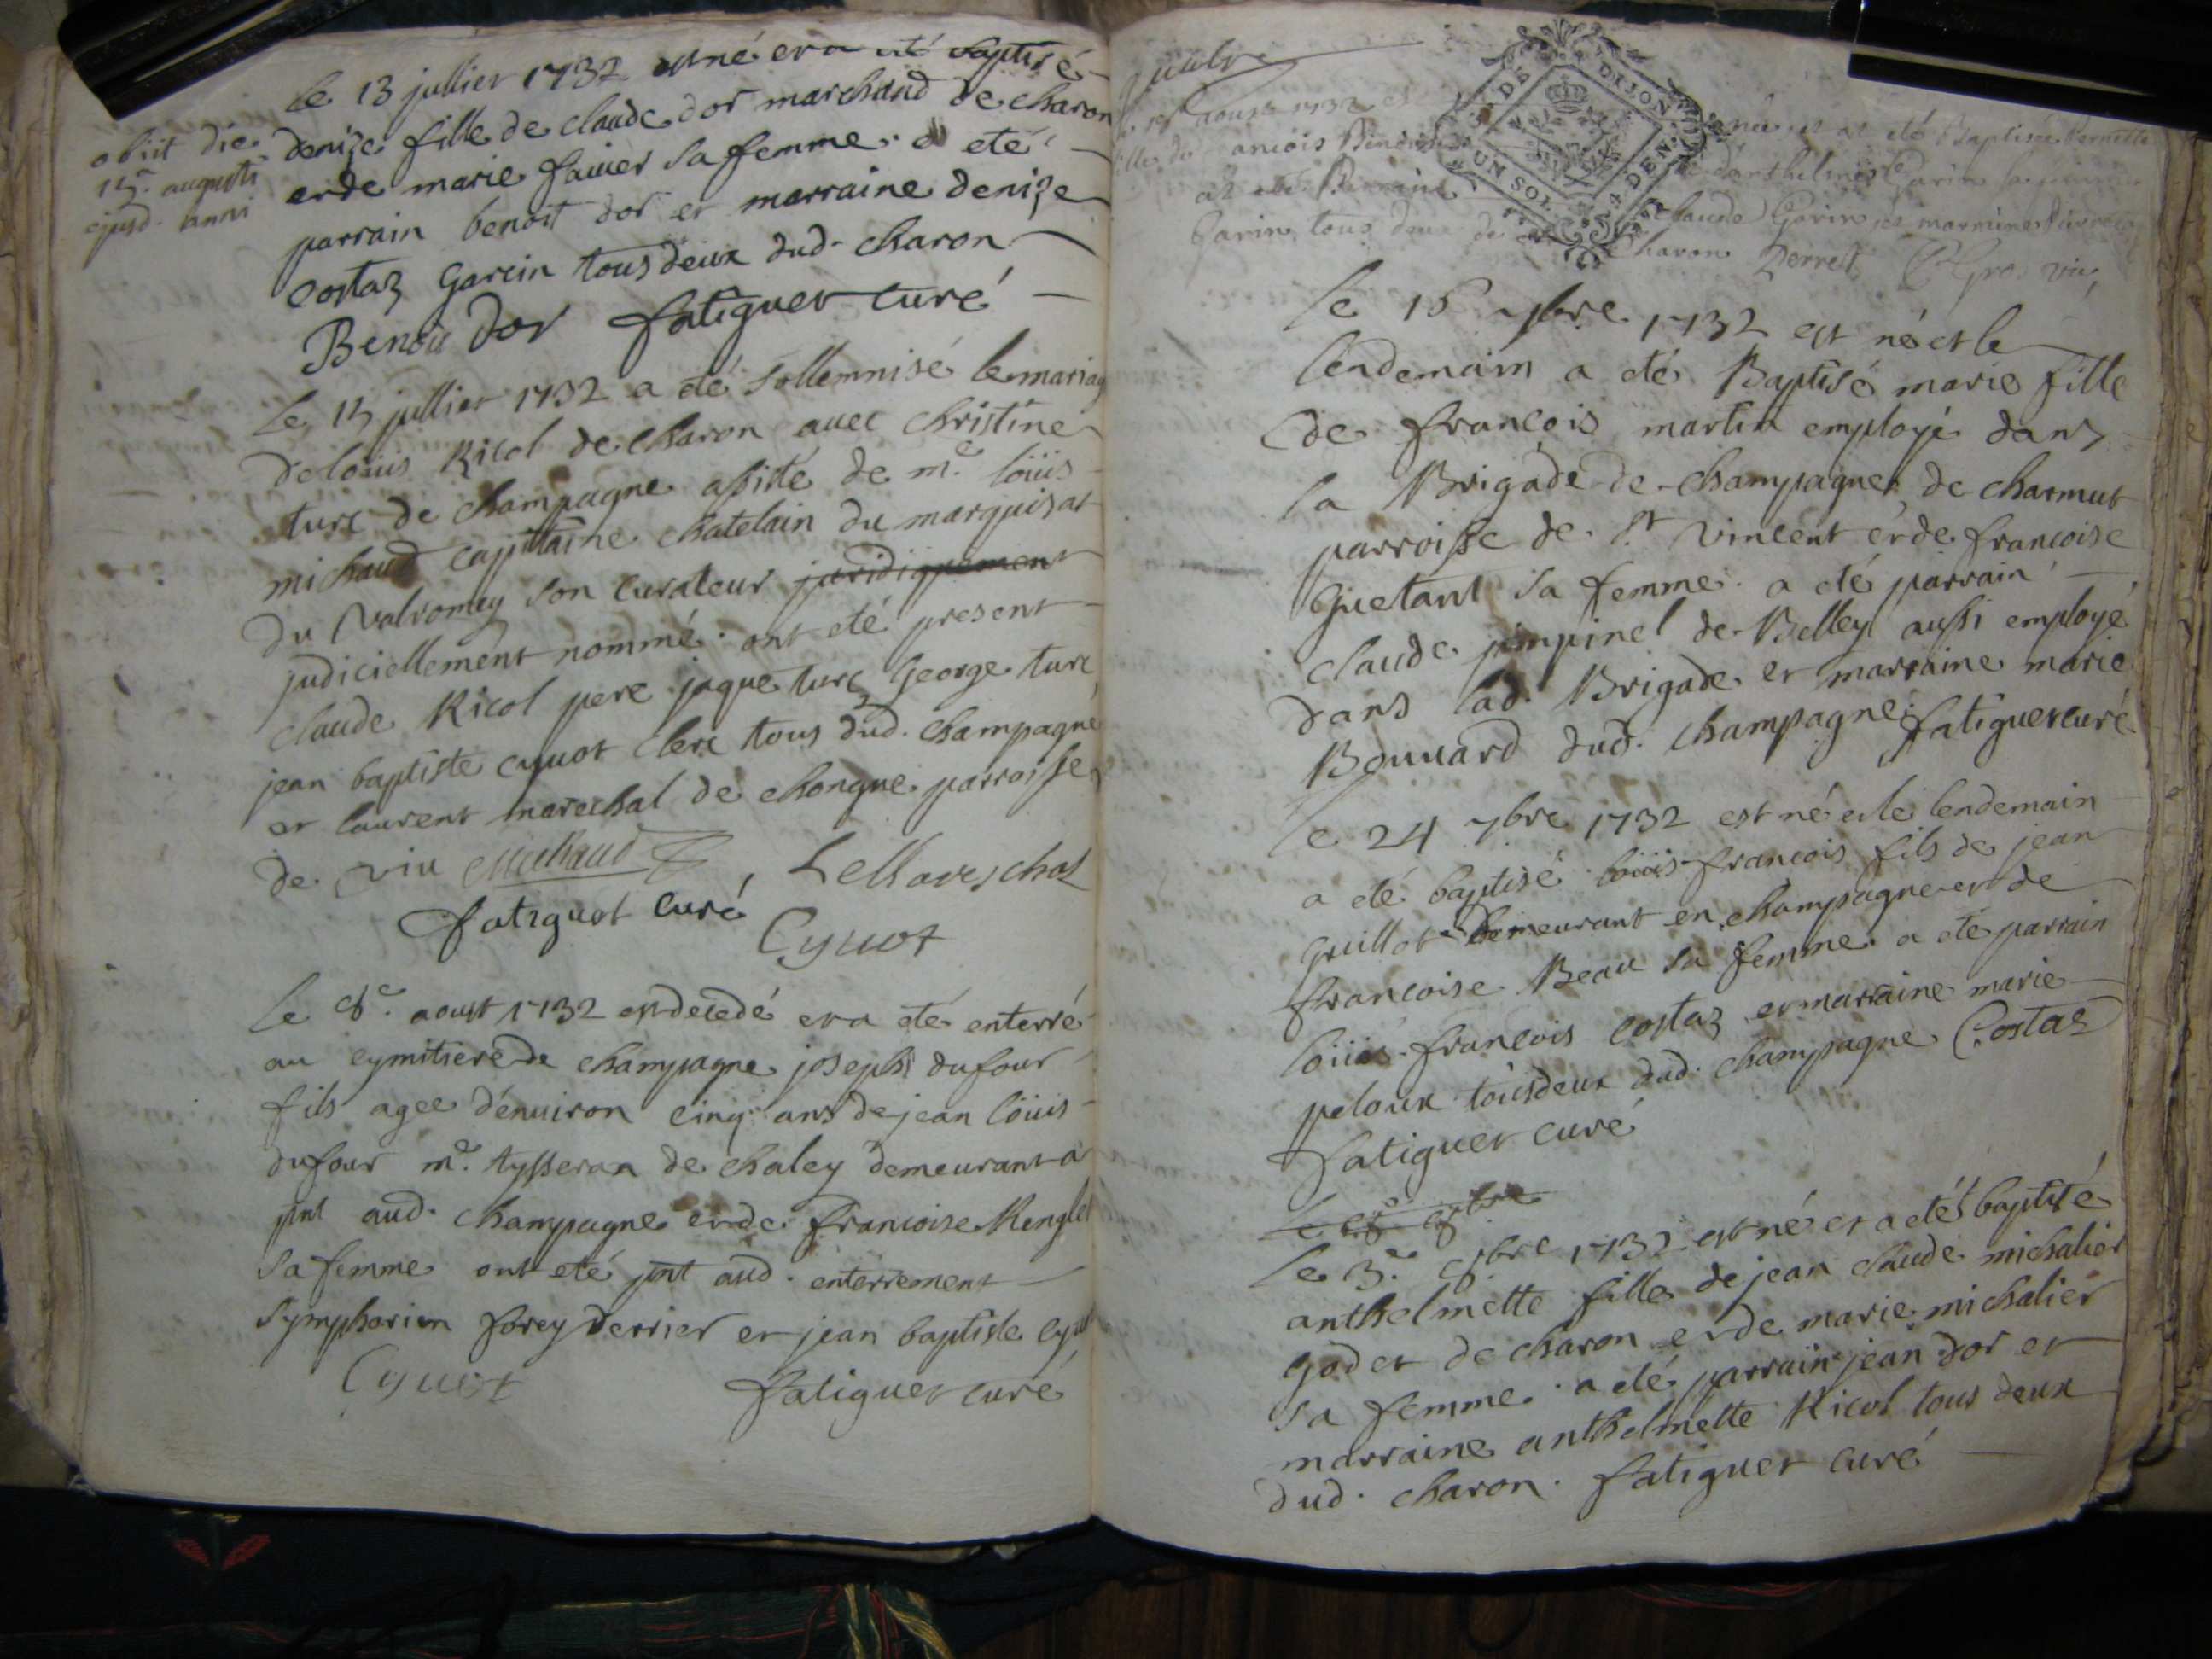 le 13 jullier 1732 est né et a eté baptisé
denize fille de claude dor marchand de charon
et de marie favier sa femme. a eté
parrain benoit dor et marraine denize
costaz garcin tous deux dud. charon
Benoit dor fatiguet curé
obiit die
15.ª augusti
ejusd. anni
le 15 jullier 1732 a eté sollemnisé le mariag
de loüis Ricol de charon avec christine
turc de champagne assisté de m.e loüis
michaud capitaine chatelain du marquisat
du valromey son curateur juridiquement
judiciellement nommé. ont eté present
claude Ricol pere jaque turc george turc
jean baptiste cyuot clerc tous dud. champagne
et laurent marechal de chongne parroisse
de viu Michaud , L Mareschal
fatiguet curé
Cyuot
le 8.e aoust 1732 est decedé et a eté enterré
au cymitiere de champagne joseph dufour
fils agee d'environ cinq ans de jean loüis
dufour m.e tysseran de chaley demeurant a
pnt aud. champagne et de francoise
sa femme ont eté pnt aud. enterrement
symphorien forey derrier et jean baptiste cyuot
Cyuot fatiguet curé
quatre
aoust 1732 et née et at eté Baptisée Pernette
fille de ancois d'anthelmette Garin sa femme
at eté Parrain claude Garin et marraine
Garin tous deux de charon Perret
DE DIJON
UN SOL 4 DEN.
le 15 7bre 1732 est né et le
lendemain a eté Baptisé marie fille
de francois martin employé dans
la Brigade de champagne de charmut
parroisse de St vincent et de francoise
guetant sa femme. a eté parrain
claude jempinel de Belley aussi employé
dans lad. Brigade et marraine marie
Bouvard dud. champagne. fatiguet curé
le 24 7bre 1732 est né et le lendemain
a eté baptisé loüis francois fils de jean
guillot demeurant en champagne et de
francoise Beau sa femme a eté parrain
loüis francois costaz et marraine marie
peloux tous deux dud. champagne Costaz
fatiguet curé
le 8.e 8bre
le 3.e 8bre 1732 est né et a eté baptisé
anthelmette fille de jean claude michalier
godet de charon et de marie michalier
sa femme. a eté parrain jean dor et
marraine anthelmette Ricol tous deux
dud. charon. fatiguet curé